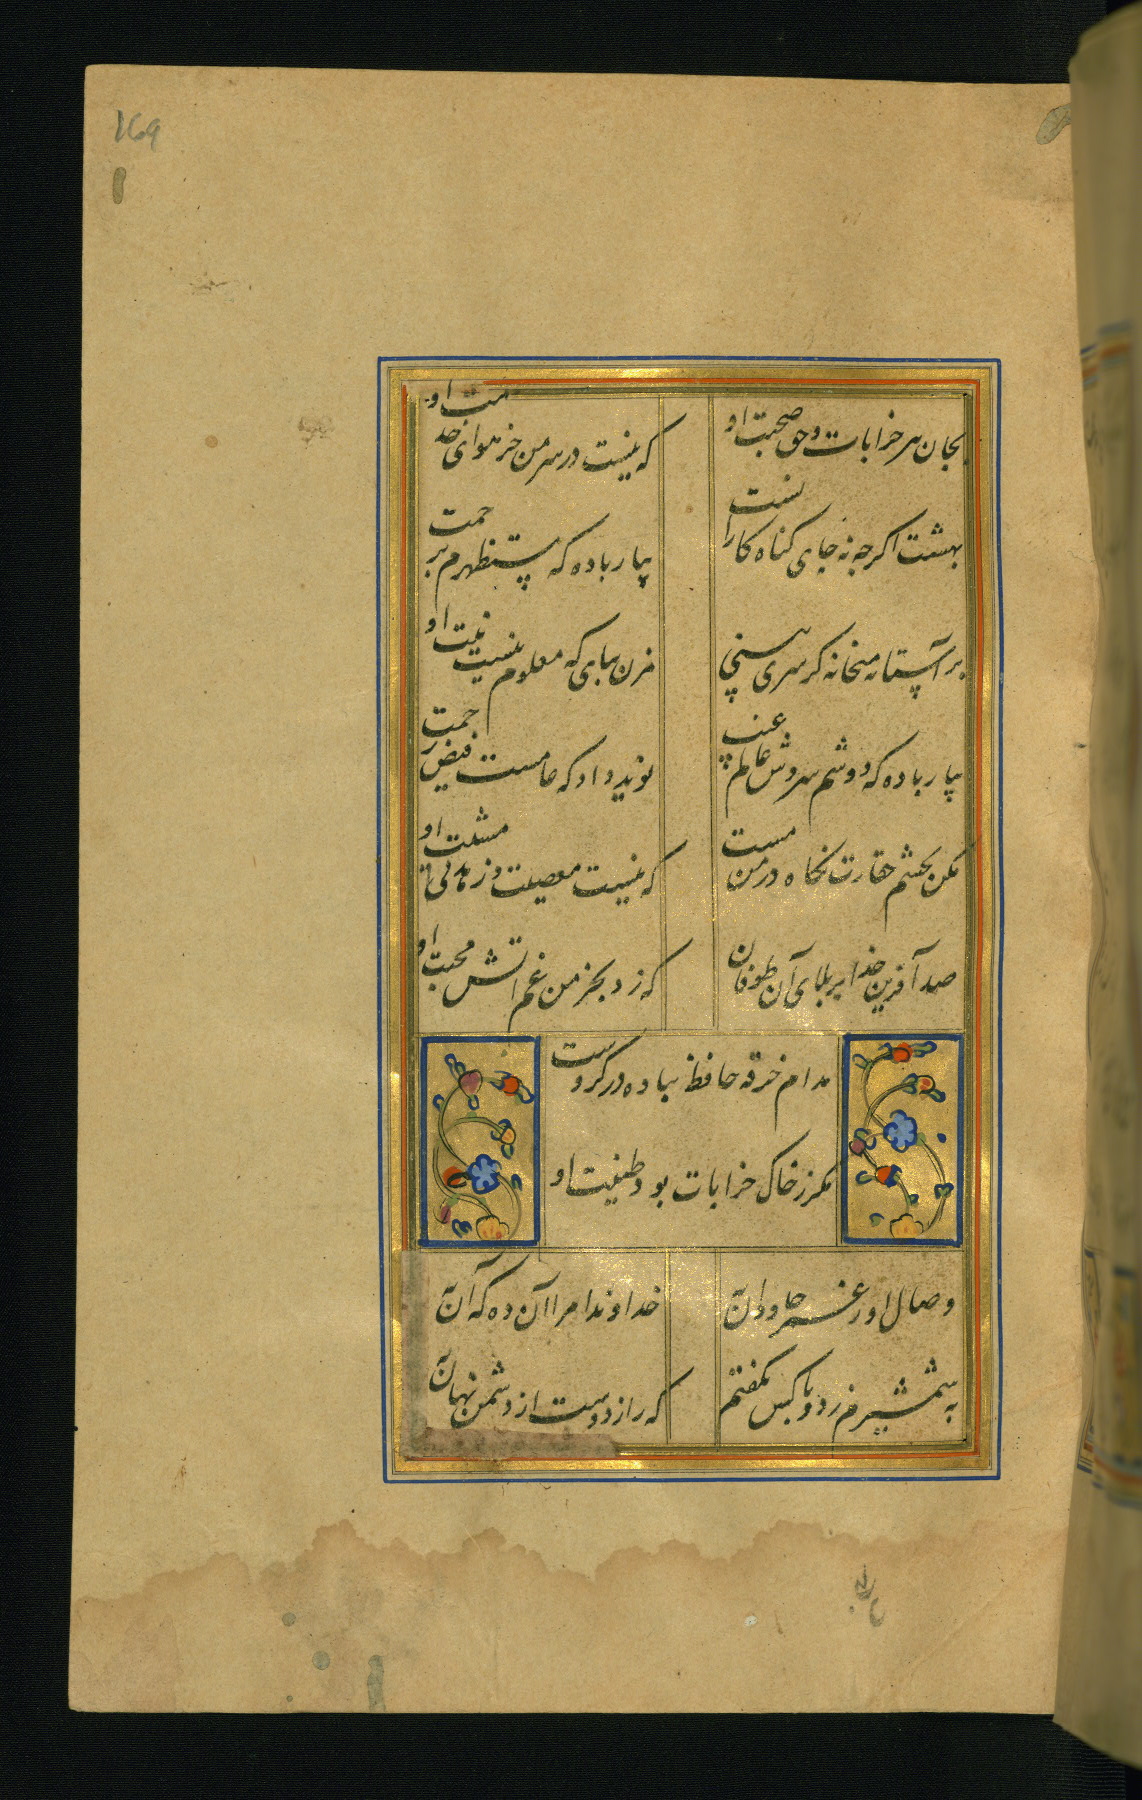 169
بجان پیر خرابات و حق صحبت او
که نیست در سر من جز هوای خدمت او
بهشت اگرچه نه جای گناه کارانست
بیار باده که مستظهرم برحمت
بر آستانه میخانه گر سری بینی
مزن بپای که معلوم نیست نیت او
بیار باده که دوشم سروش عالم غیب
نوید داد که عامست فیض رحمت
مکن بچشم حقارت نگاه در من مست
که نیست معصیت و زهد بی مشیت او
صد آفرین خدا بر بلای آن طوفان
که زد بخرمن غم آتش محبت او
مدام خرقه حافظ بباده در گروست
مگر ز خاک خرابات بود طینت او
وصال او ز عمر جاودان به
خداوندا مرا آن ده که آن به
به شمشیرم زد و با کس نگفتم
که راز دوست از دشمن نهان به